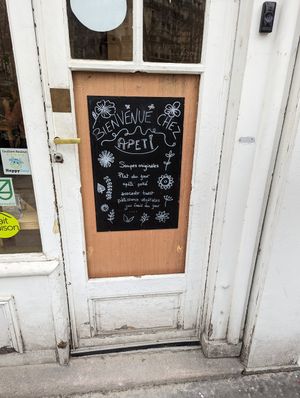 BIENVENUE CHEZ
APETI
Soupes originales
Plat du jour
avocado toast
pâtisseries végétales
jus frais du jour
Happy